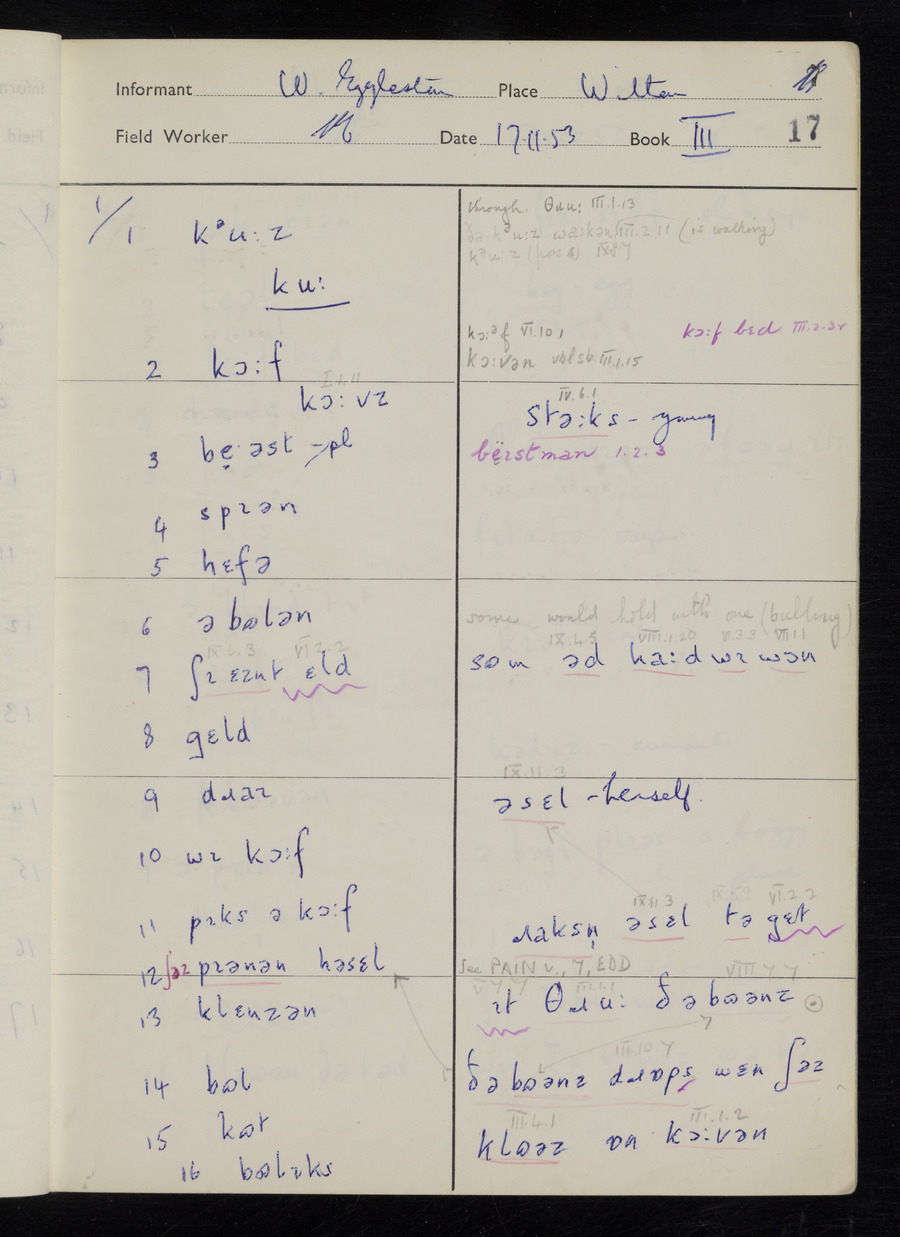 Informant W. Eggleston Place Witton
17
Field Worker Date 17.11.53 Book III
1/
1 kᵊu:z
ku:
2 kɔ:f
I.1.11
kɔ:vz
3 bẹ·əst - pl
4 sprən
5 hɛfə
6 ə bʊlən
IX.6.3 VI 2.2
7 ʃɪ ɛznt ɛld
8 gɛld
9 dɹaɪ
10 wɪ kɔ:f
11 pɪks ə kɔ:f
12 ʃəz pɪənən həsɛl
13 klɛnzən
14 bʊl
15 kʊt
16 bʊlɪks
through. θɹu: III.1.13
ðə kᵊu:z wa:kən III.2.11 (is walking)
kᵊu:z (poss) IX 8 7
kɔ:ᵊf VI.10,
kɔ:f bɛd III.2.3v
kɔ:vən vbl sb. III.1.15
IV.6.1
stə:ks - young
bẹ:stman 1.2.3
some would hold with one (bulling)
IX.4.5 VIII.1 20 V.3.3 VII 11
sʊm əd ha:d wɪ wən
IX.11.3
əsɛl - herself.
IX.11 3 IX.5 9 VI.2.2
ɹaksn̩ əsɛl tə gɛt
See PAIN v., 7, EDD
V 7 7 III.1.1 VIII 7 7
ɪt θɹu: ðə bʊənz
III.10 7
ðə bʊənz dɹɒps wɛn ʃəz
III.4.1 III.1.2
klʊəz ɒn kɔ:vən